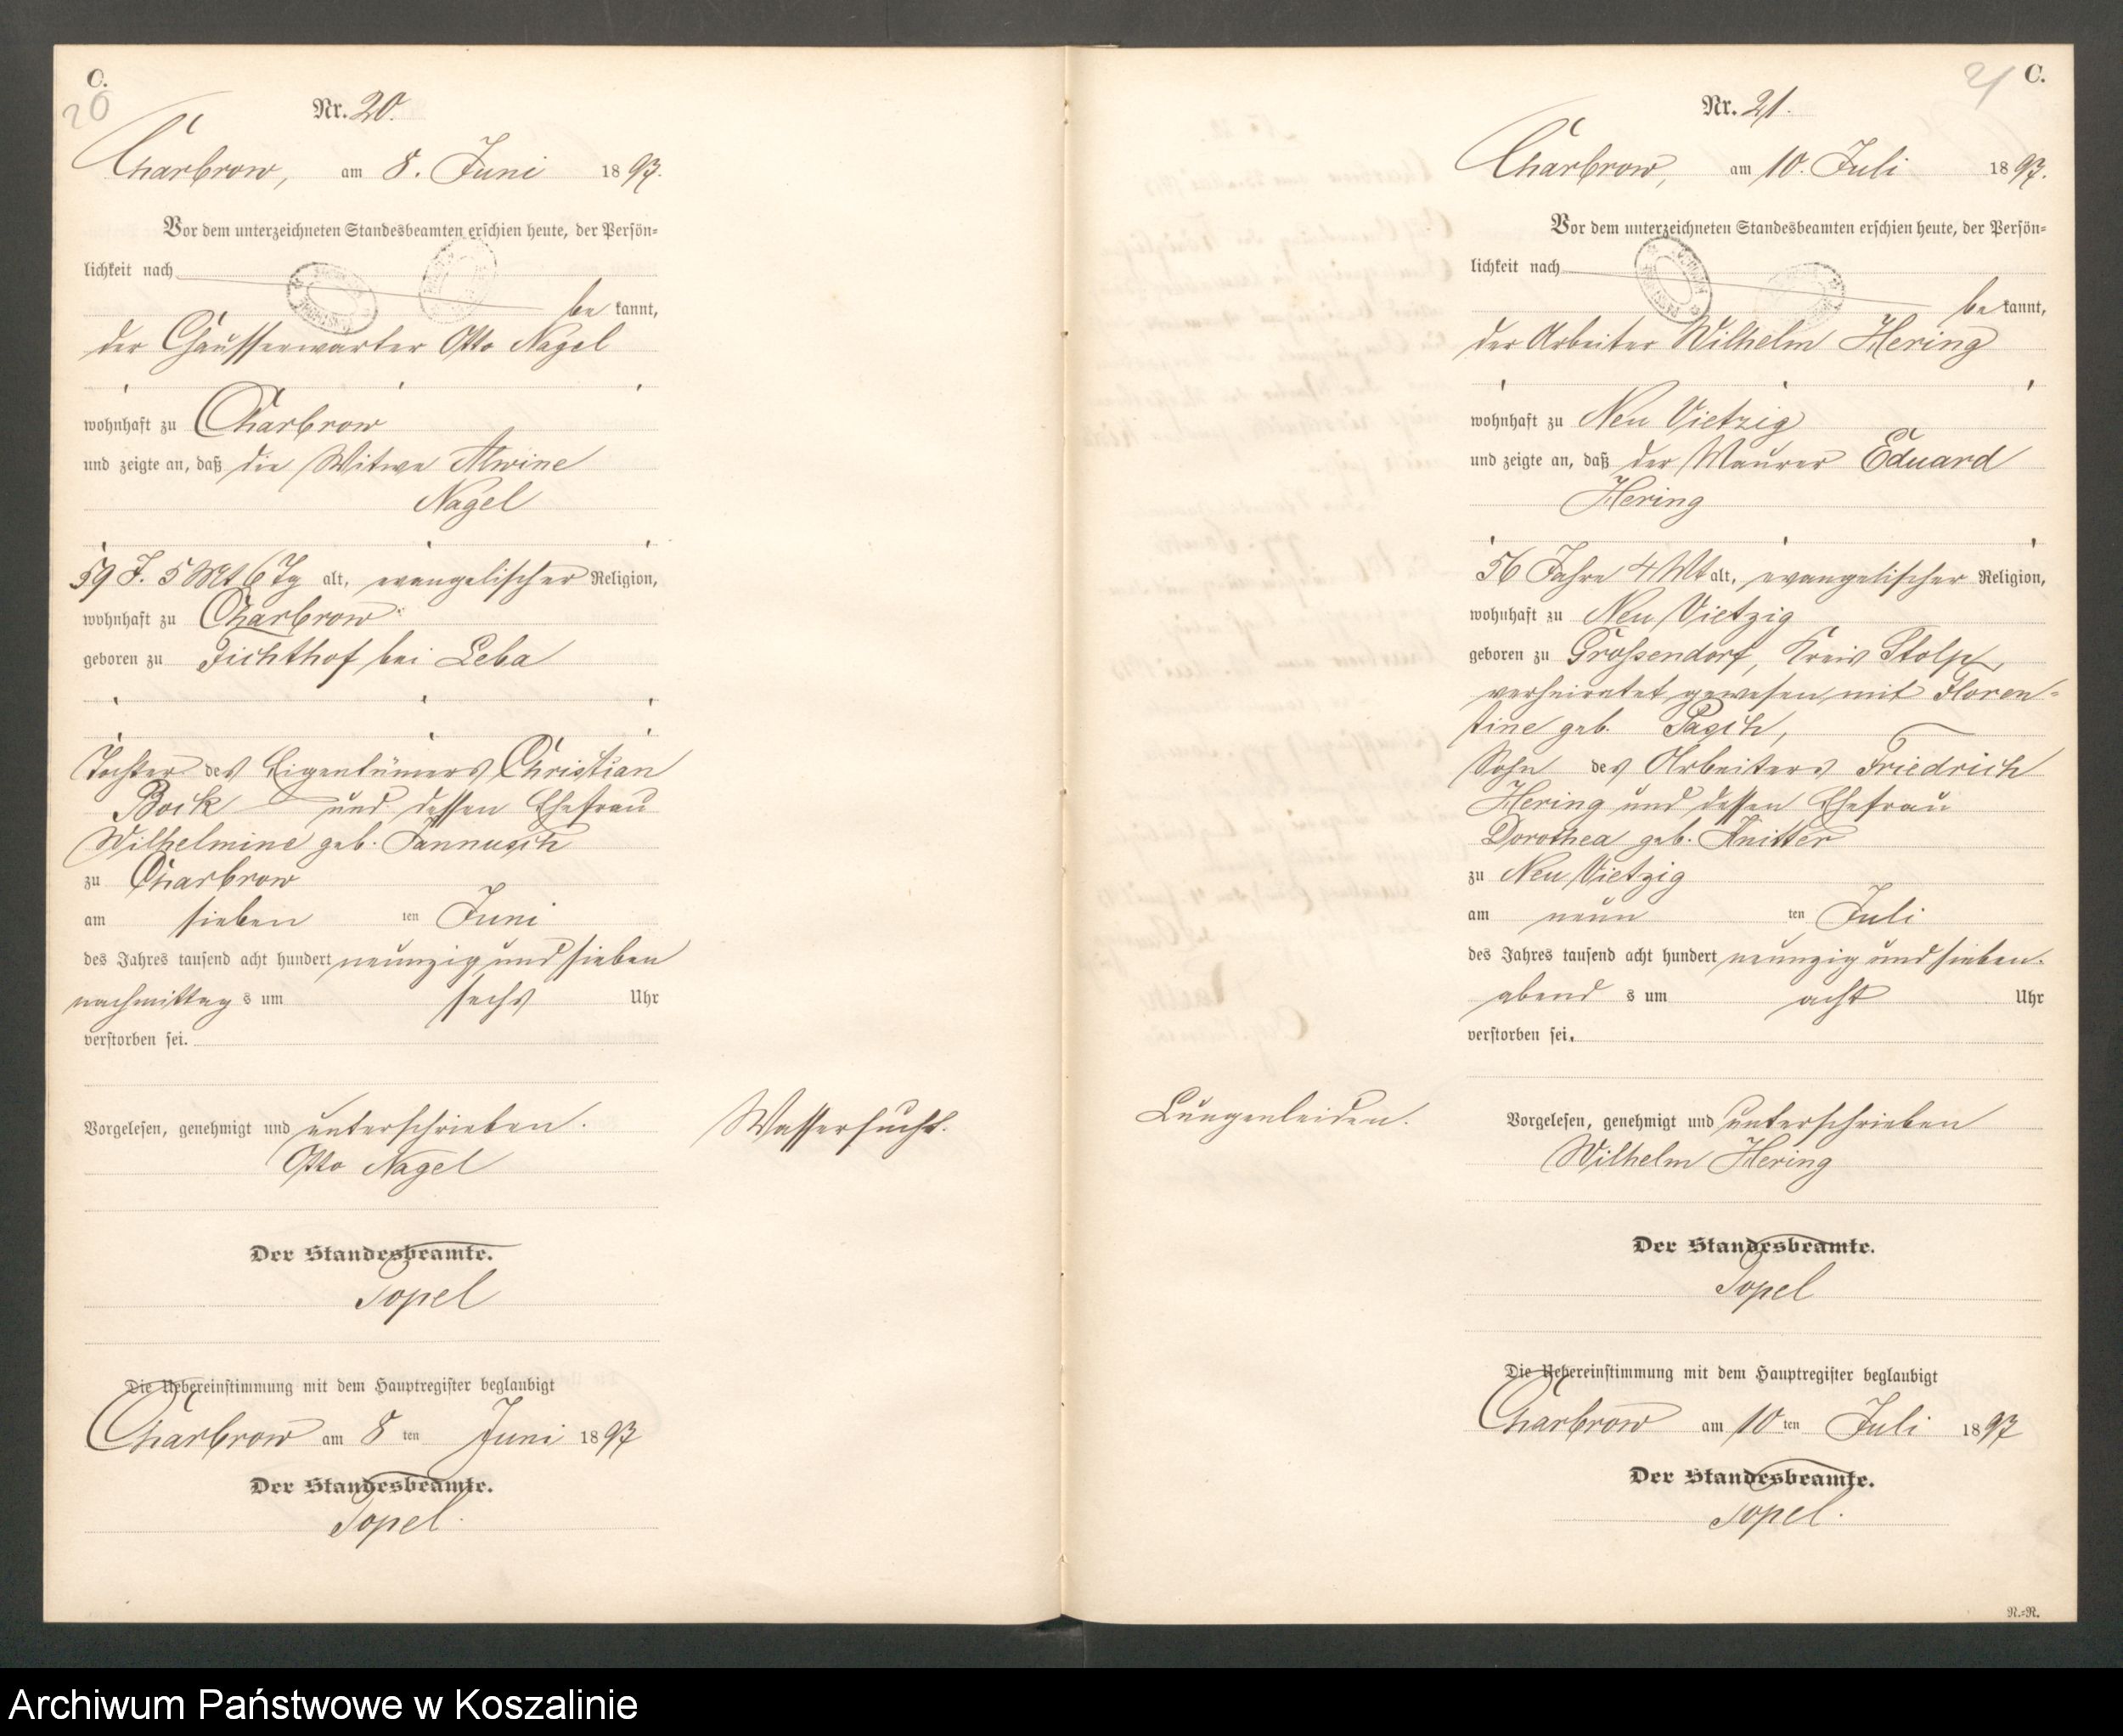 C.
20
Nr. 20.
Charbrow, am 8. Juni 1897.
Vor dem unterzeichneten Standesbeamten erschien heute, der Persön-
lichkeit nach
be kannt,
der Chausseewärter Otto Nagel
wohnhaft zu Charbrow
und zeigte an, daß die Witwe Alwine
Nagel
59 J. 5 Mt 6 Tg alt, evangelischer Religion,
wohnhaft zu Charbrow
geboren zu Fichthof bei Leba
Tochter des Eigentümers Christian
Bock und dessen Ehefrau
Wilhelmine geb. Jannusch
zu Charbrow
am sieben ten Juni
des Jahres tausend acht hundert neunzig und sieben
nachmittag s um sechs Uhr
verstorben sei.
Vorgelesen, genehmigt und unterschrieben.
Otto Nagel
Wassersucht.
Der Standesbeamte.
Topel
Die Uebereinstimmung mit dem Hauptregister beglaubigt
Charbrow am 8 ten Juni 1897
Der Standesbeamte.
Topel.
C.
21
Nr. 21.
Charbrow, am 10. Juli 1897.
Vor dem unterzeichneten Standesbeamten erschien heute, der Persön-
lichkeit nach
be kannt,
der Arbeiter Wilhelm Hering
wohnhaft zu Neu Vietzig
und zeigte an, daß der Maurer Eduard
Hering
56 Jahre 4 Mt alt, evangelischer Religion,
wohnhaft zu Neu Vietzig
geboren zu Grossendorf, Kreis Stolp
verheiratet gewesen mit Floren-
tine geb. Pasch,
Sohn des Arbeiters Friedrich
Hering und dessen Ehefrau
Dorothea geb. Knitter
zu Neu Vietzig
am neun ten Juli
des Jahres tausend acht hundert neunzig und sieben.
abend s um acht Uhr
verstorben sei.
Lungenleiden.
Vorgelesen, genehmigt und unterschrieben
Wilhelm Hering
Der Standesbeamte.
Topel
Die Uebereinstimmung mit dem Hauptregister beglaubigt
Charbrow am 10 ten Juli 1897
Der Standesbeamte.
Topel.
N.=N.
Archiwum Państwowe w Koszalinie